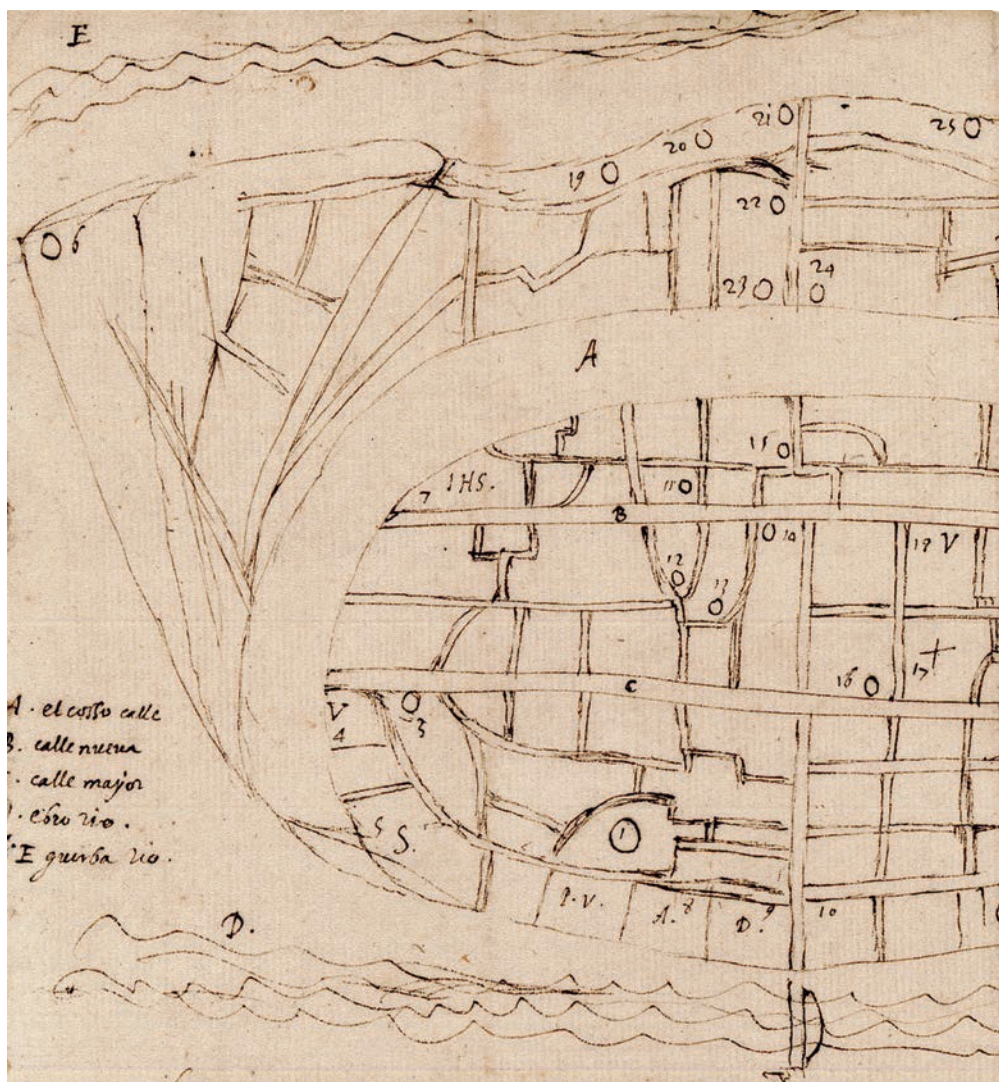 E
21
25
20
19
22
6
24
23
A
15
7 IHS.
11
B
14
18 V
12
13
17
C
16
3
V
4
A. el cosso calle
B. calle nueva
calle major
ebro rio.
E guerba rio.
5 S.
1
P. V.
A. 8
D. 9
10
D.